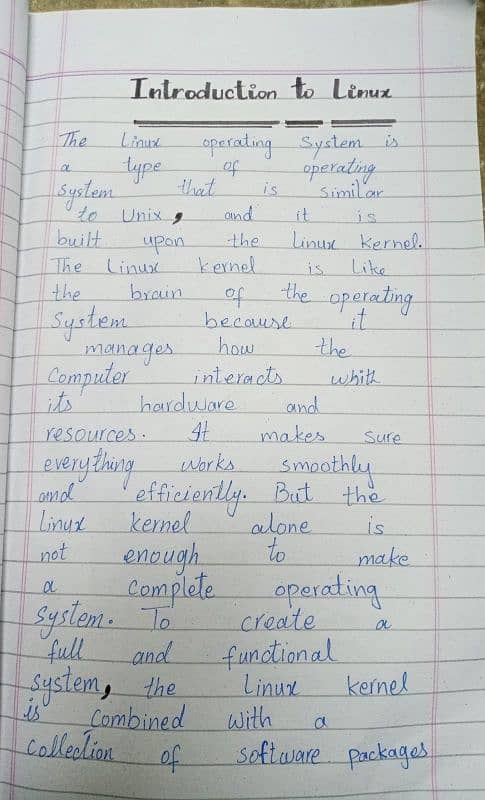 Introduction to Linux
The Linux operating System is
a type of operating
system that is similar
to Unix, and it is
built upon the Linux Kernel.
The Linux kernel is like
the brain of the operating
System because it
manages how the
Computer interacts whith
its hardware and
resources. It makes sure
everything works smoothly
and efficiently. But the
Linux kernel alone is
not enough to make
a complete operating
system. To create a
full and functional
system, the Linux kernel
is combined with a
collection of software packages